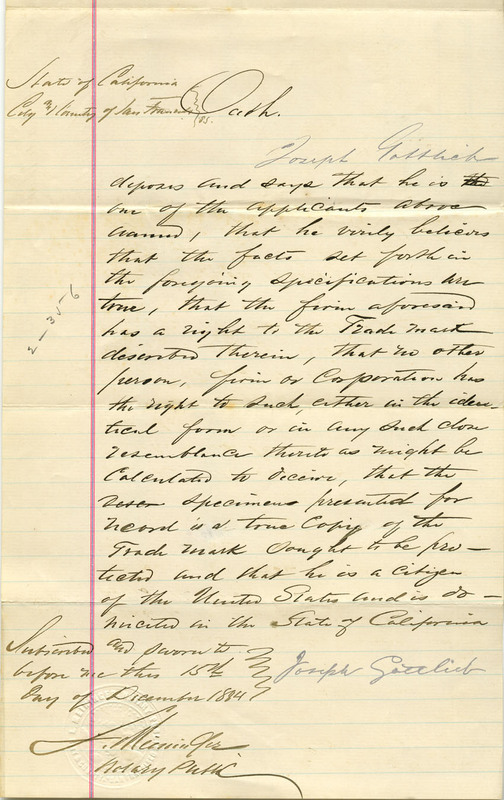 State of California
City & County of San Francisco } ss. Oath.
Joseph Gottlieb
deposes and says that he is the
one of the applicants above
named, that he verily believes
that the facts set forth in
the foregoing specifications are
true, that the firm aforesaid
has a right to the Trade mark
described therein, that no other
person, firm or Corporation has
the right to such, either in the iden
tical form or in any such close
resemblance thereto as might be
Calculated to deceive, that the
specimens presented for
record is a true Copy of the
Trade mark sought to be pro—
tected and that he is a citizen
of the United States and is do—
miciled in the State of California
Subscribed and sworn to
before me this 15th
Day of December 1884
Joseph Gottlieb
Notary Public
2—356